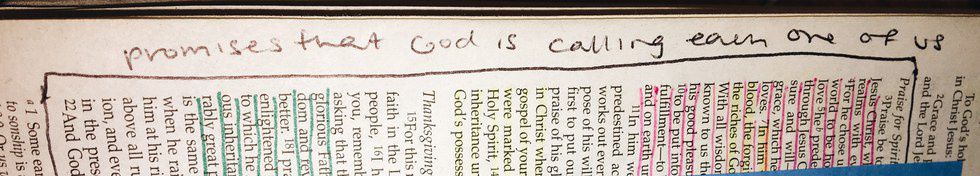 promises that God is calling each one of us
in God's ho
2Grace and p
and the Lord Je
Praise for Spirit
3Praise be to
Jesus Christ, w
realms with e
4For he chose
world to be ho
love 5he b prede
through Jesus C
sure and will
grace, which he
loves. 7In him
blood, the forgi
the riches of G
With all wisdom
known to us th
his good pleasu
10to be put into
fulfillment—to
and on earth un
11In him we w
predestined ac
works out ever
pose of his will
first to put ou
praise of his gl
in Christ when
gospel of your
were marked
Holy Spirit, 14
inheritance un
God's possess
Thanksgiving
15For this
faith in the L
people, 16I h
you, remem
asking that t
glorious Fath
dom and rev
better. 18I pr
enlightened
to which he
ous inheritan
rably great
is the same
when he rai
him at his ri
above all ru
ion, and eve
in the pres
22And God
a1 Some ea
to sonship